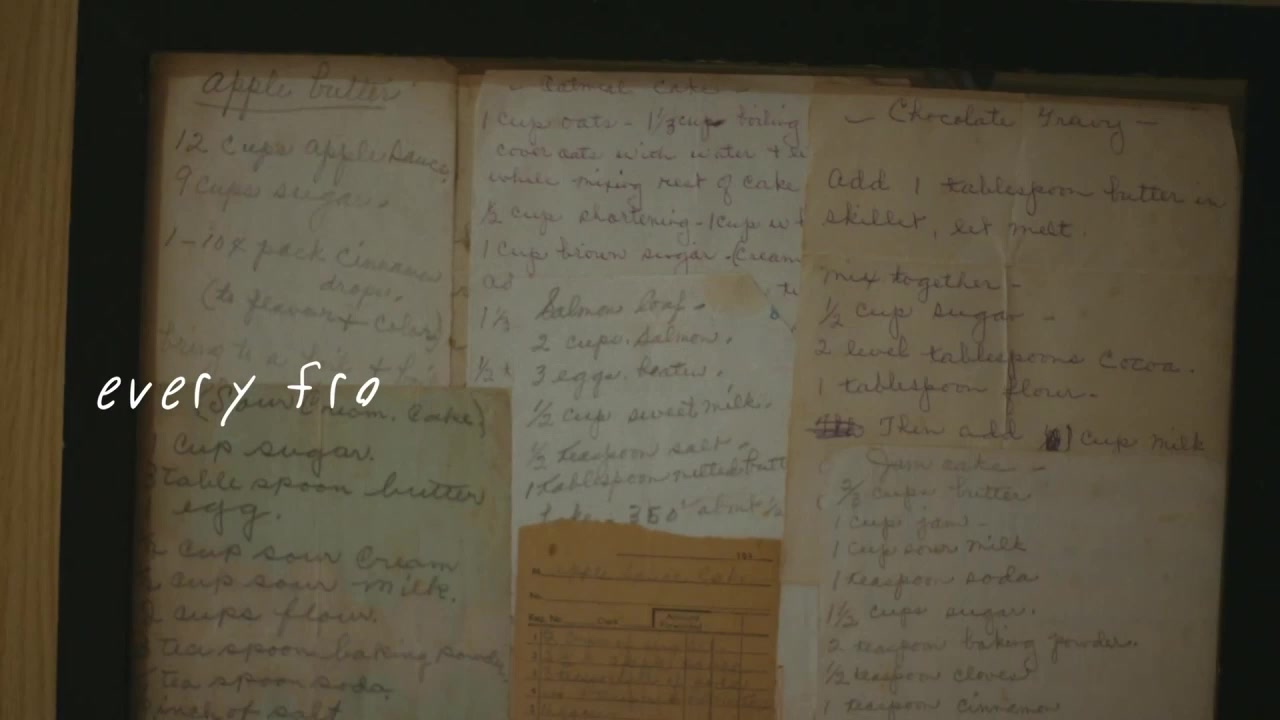 apple butter
12 Cups apple Sauce,
9 cups sugar.
1-10¢ pack Cinnamon
drops.
(to flavor + Color)
bring to a boil +
(Sour Cream. Cake)
cup sugar.
3 table spoon butter
egg.
cup sour Cream
cup sour milk.
2 cups flour.
3 tea spoon baking powder
tea spoon soda
inch of salt
Oatmeal Cake -
1 Cup oats - 1 1/3 cup boiling
cover oats with water +
while mixing rest of cake
1/2 cup shortening - 1 cup
1 cup brown sugar. (Cream
ad
1 1/3
1/2 t
Salmon loaf -
2 cups. Salmon.
3 eggs. beaten.
1/2 cup sweet milk.
1/2 teaspoon salt -
1 tablespoon melted butt
350° about
apple sauce Cake
- Chocolate Gravy -
add 1 tablespoon butter in
skillet, let melt.
mix together -
1/2 cup sugar -
2 level tablespoons Cocoa.
1 tablespoon flour.
Then add 1 cup milk
Jam cake -
2/3 cups butter
1 cup jam -
1 cup sour milk
1 teaspoon soda
1 1/3 cups sugar.
2 teaspoon baking powder.
1/2 teaspoon cloves
1 teaspoon cinnamon
every fro